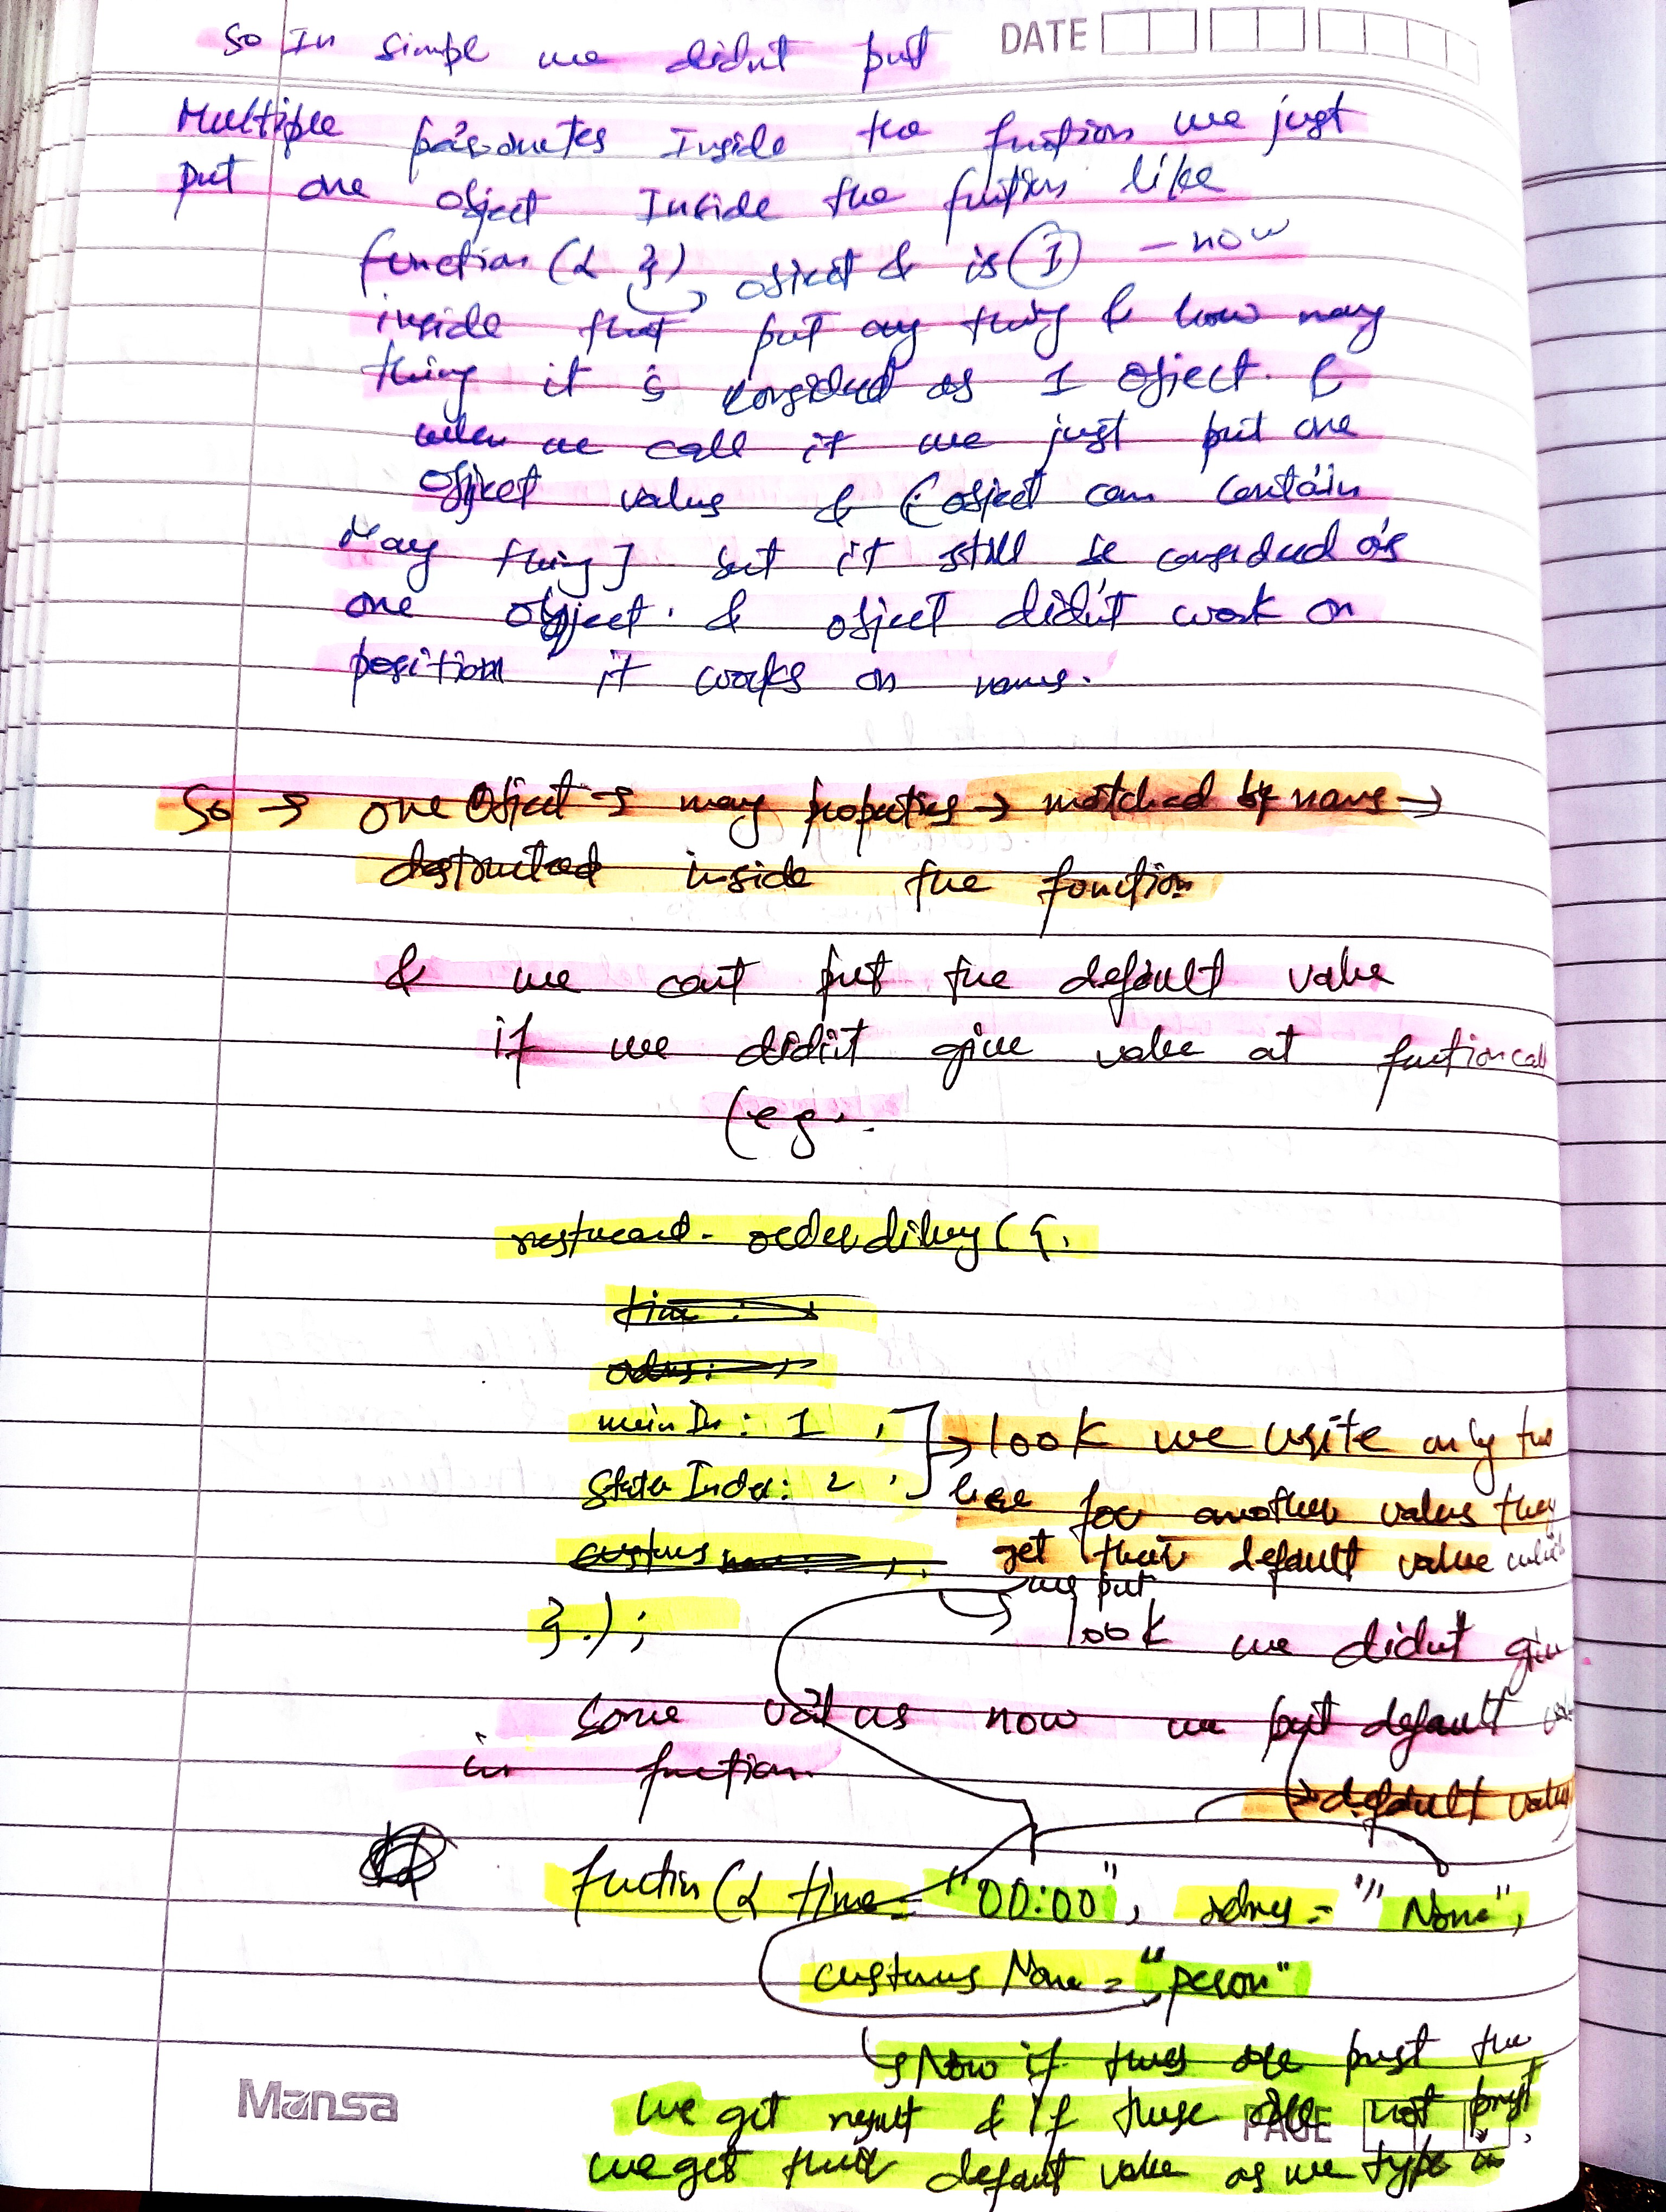 So In simple we didn't put DATE
Multiple Inside the function we just
put one object Inside the function like
function ({ }) object & is (1) - now
inside that put any thing & how many
thing it is considered as 1 object. &
when we call it we just put one
object value & (object can contain
Many thing] but it still be considered as
one object. & object didn't work on
position it works on names.
So → one Object → many properties → matched by name →
destructed inside the function
& we can't put the default value
if we didn't give value at function call
(eg.
restaurant. orderdilvey ({
time :
mainIn : 1 ,
Stater Index : 2 ,
→ look we write only two
here for another values they
get their default value which
we put
});
look we didn't give
some values now we put default
in function.
→ default value
function ({ time = "00:00", = "None",
customer Name = "person"
→ Now if they are prest the
we get result & if these are not prest,
we get their default value as we type in
Mansa
PAGE